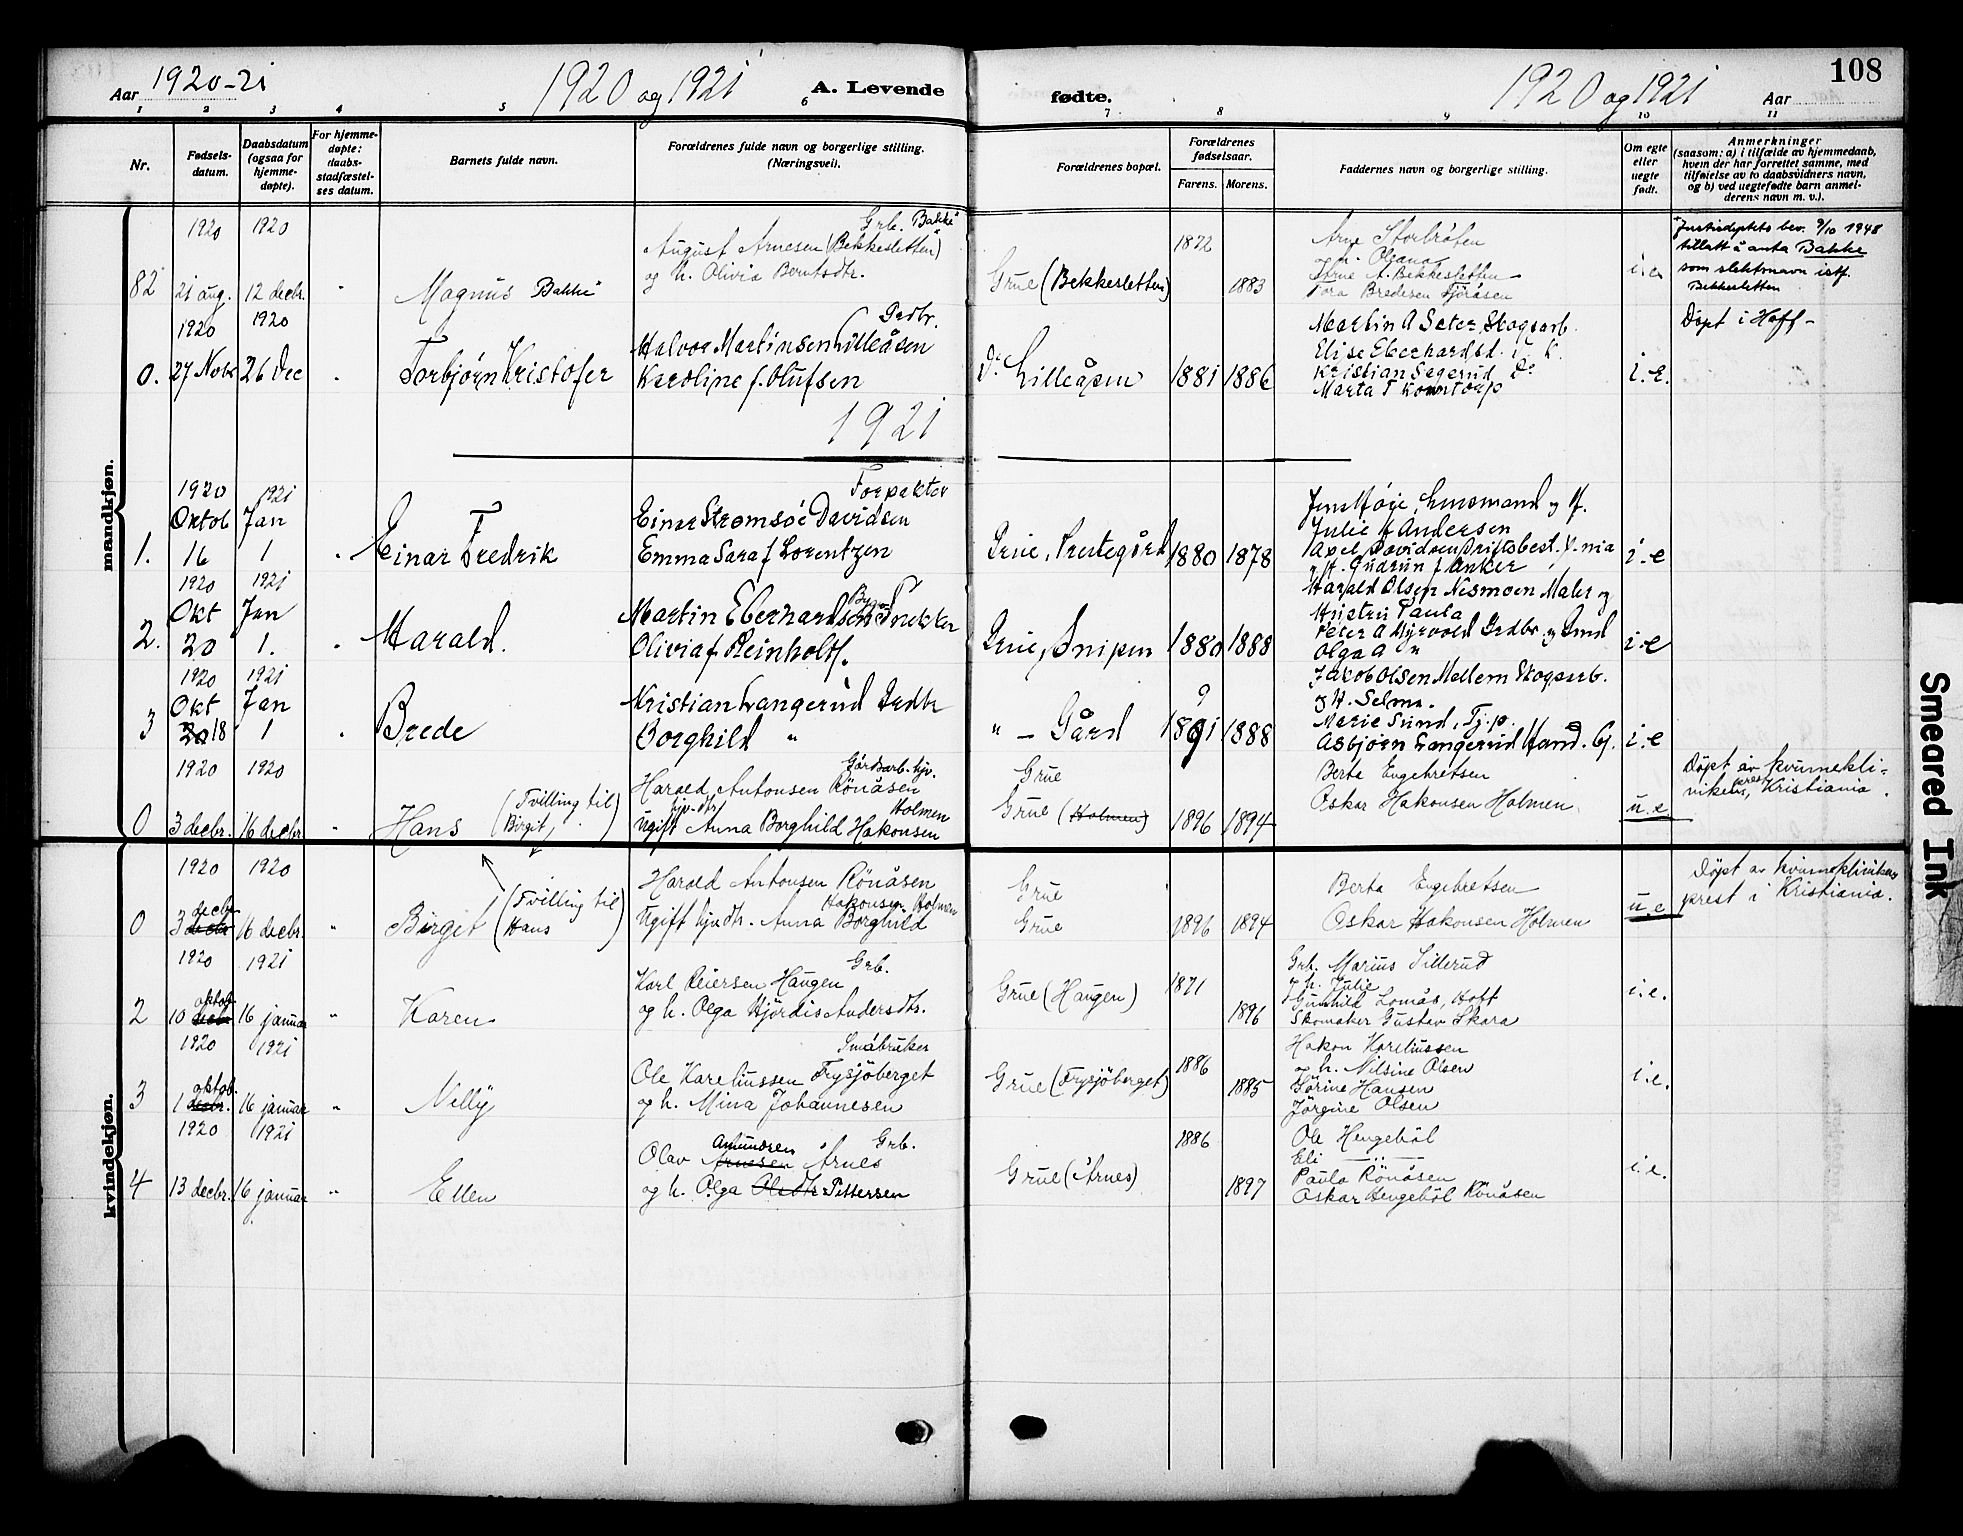 Aar 1920-21
1920 og 1921
A. Levende
fødte.
1920 og 1921
Aar
108
1 2 3 4 5 6 7 8 9 10 11
Nr.
Fødselsdatum.
Daabsdatum (ogsaa for hjemmedøpte).
For hjemmedøpte: daabsstadfæstelses datum.
Barnets fulde navn.
Forældrenes fulde navn og borgerlige stilling. (Næringsvei).
Forældrenes bopæl.
Forældrenes fødselsaar.
Farens. Morens.
Faddernes navn og borgerlige stilling.
Om egte eller uegte født.
Anmerkninger
(saasom: a) i tilfælde av hjemmedaab, hvem der har forrettet samme, med tilføielse av to daabsvidners navn, og b) ved uegtefødte barn anmelderens navn m. v.).
mandkjøn.
82 1920 21 aug. 1920 12 decbr. "
Magnus Bakke"
Grb. Bakke"
August Arnesen (Bekkesletten)
og h. Olivia Berntsdtr.
Grue (Bekkesletten)
1872 1883
Arne Storbråten
og h. Oleana
Arne A. Bekkesletten
Tora Bredesen Tjöråsen
i.e.
Justisdeptets bev. 9/10 1948
tillatt å anta Bakke
som slektsnavn istf.
Bekkesletten
0. 1920 27 Nobr 1920 26 Dec "
Torbjørn Kristofer
Grdbr.
Halvor Martinsen Lilleåsen
Karoline f. Olufsen
Do Lilleåsen
1881 1886
Martin A Seter, Skogsarb.
Elise Eberhardsd. i. K.
Kristian Segerud Do
Marta T Komtorp
i.e.
Døpt i Hoff -
1921
1. 1920 Oktob 16 1921 Jan 1 "
Einar Fredrik
Forpakter
Einar Strømsöe Davidsen
Emma Sara f Lorentzen
Grue, Prestegård
1880 1878
Jens Høje, Lensmand og H.
Julie f Andersen
Axel Davidsen Driftsbest.
og H. Gudrun f Anker
i.e
2. 1920 Okt 20 1921 Jan 1. "
Harald.
Martin Eberhardsen Snekker
Olivia f Reinholts.
Grue, Snipen
1880 1888
Harald Olsen Nismoen Maler og
Hustru Paula
Peter A Myrvold Grdbr. og Smed
Olga A "
i.e
3 1920 Okt 20 18 1921 Jan 1 "
Brede
Kristian Langerud Grdbr
Borghild "
" - Gård
1891 1888
Jakob Olsen Mellem Skogsarb.
og H. Selma.
Marie Sund, Tj.p.
Asbjørn Langerud Hand. Bj.
i.e
0 1920 3 decbr. 1920 16 decbr. "
Hans (Tvilling til Birgit)
Gårdarb. hjv.
Harald Antonsen Rönåsen
hjv. dtr. Holmen
Ugift Anna Borghild Hakonsen
Grue
Grue (Holmen)
1896 1894
Berta Engebretsen
Oskar Hakonsen Holmen
u.e
Døpt av kvinnekli-
nikens prest, Kristiania.
kvindekjøn.
0 1920 3 decbr decbr 1920 16 decbr. "
Birgit (Tvilling til Hans)
Harald Antonsen Rönåsen
Hakonsen Holmen
Ugift hjv. dtr. Anna Borghild
Grue
Grue
1896 1894
Berta Engebretsen
Oskar Hakonsen Holmen
u.e
Døpt av kvinneklinikens
prest i Kristiania.
2 1920 10 oktob. decbr 1921 16 januar "
Karen
Grb.
Karl Reiersen Haugen
og h. Olga Hjördis Andersdtr.
Grue (Haugen)
1871 1896
Grb. Marius Sillerud
og h. Julie
Gunhild Lomås, Hoff
Skomaker Gustav Skara
i.e.
3 1920 1 oktob. decbr. 1921 16 januar "
Nelly
Småbruker
Ole Kareliussen Frysjöberget
og h. Mina Johannesen
Grue (Frysjöberget)
1886 1885
Hakon Kareliussen
og h. Nilsine Olsen
Görine Hansen
Jörgine Olsen
i.e.
4 1920 13 decbr. 1921 16 januar "
Ellen
Amundsen Grb.
Olav Arnesen Arnes
og h. Olga Olsdtr Pettersen
Grue (Arnes)
1886 1897
Ole Hengeböl
Eli
Paula Rönåsen
Oskar Hengeböl Rönåsen
i.e.
Smeared Ink